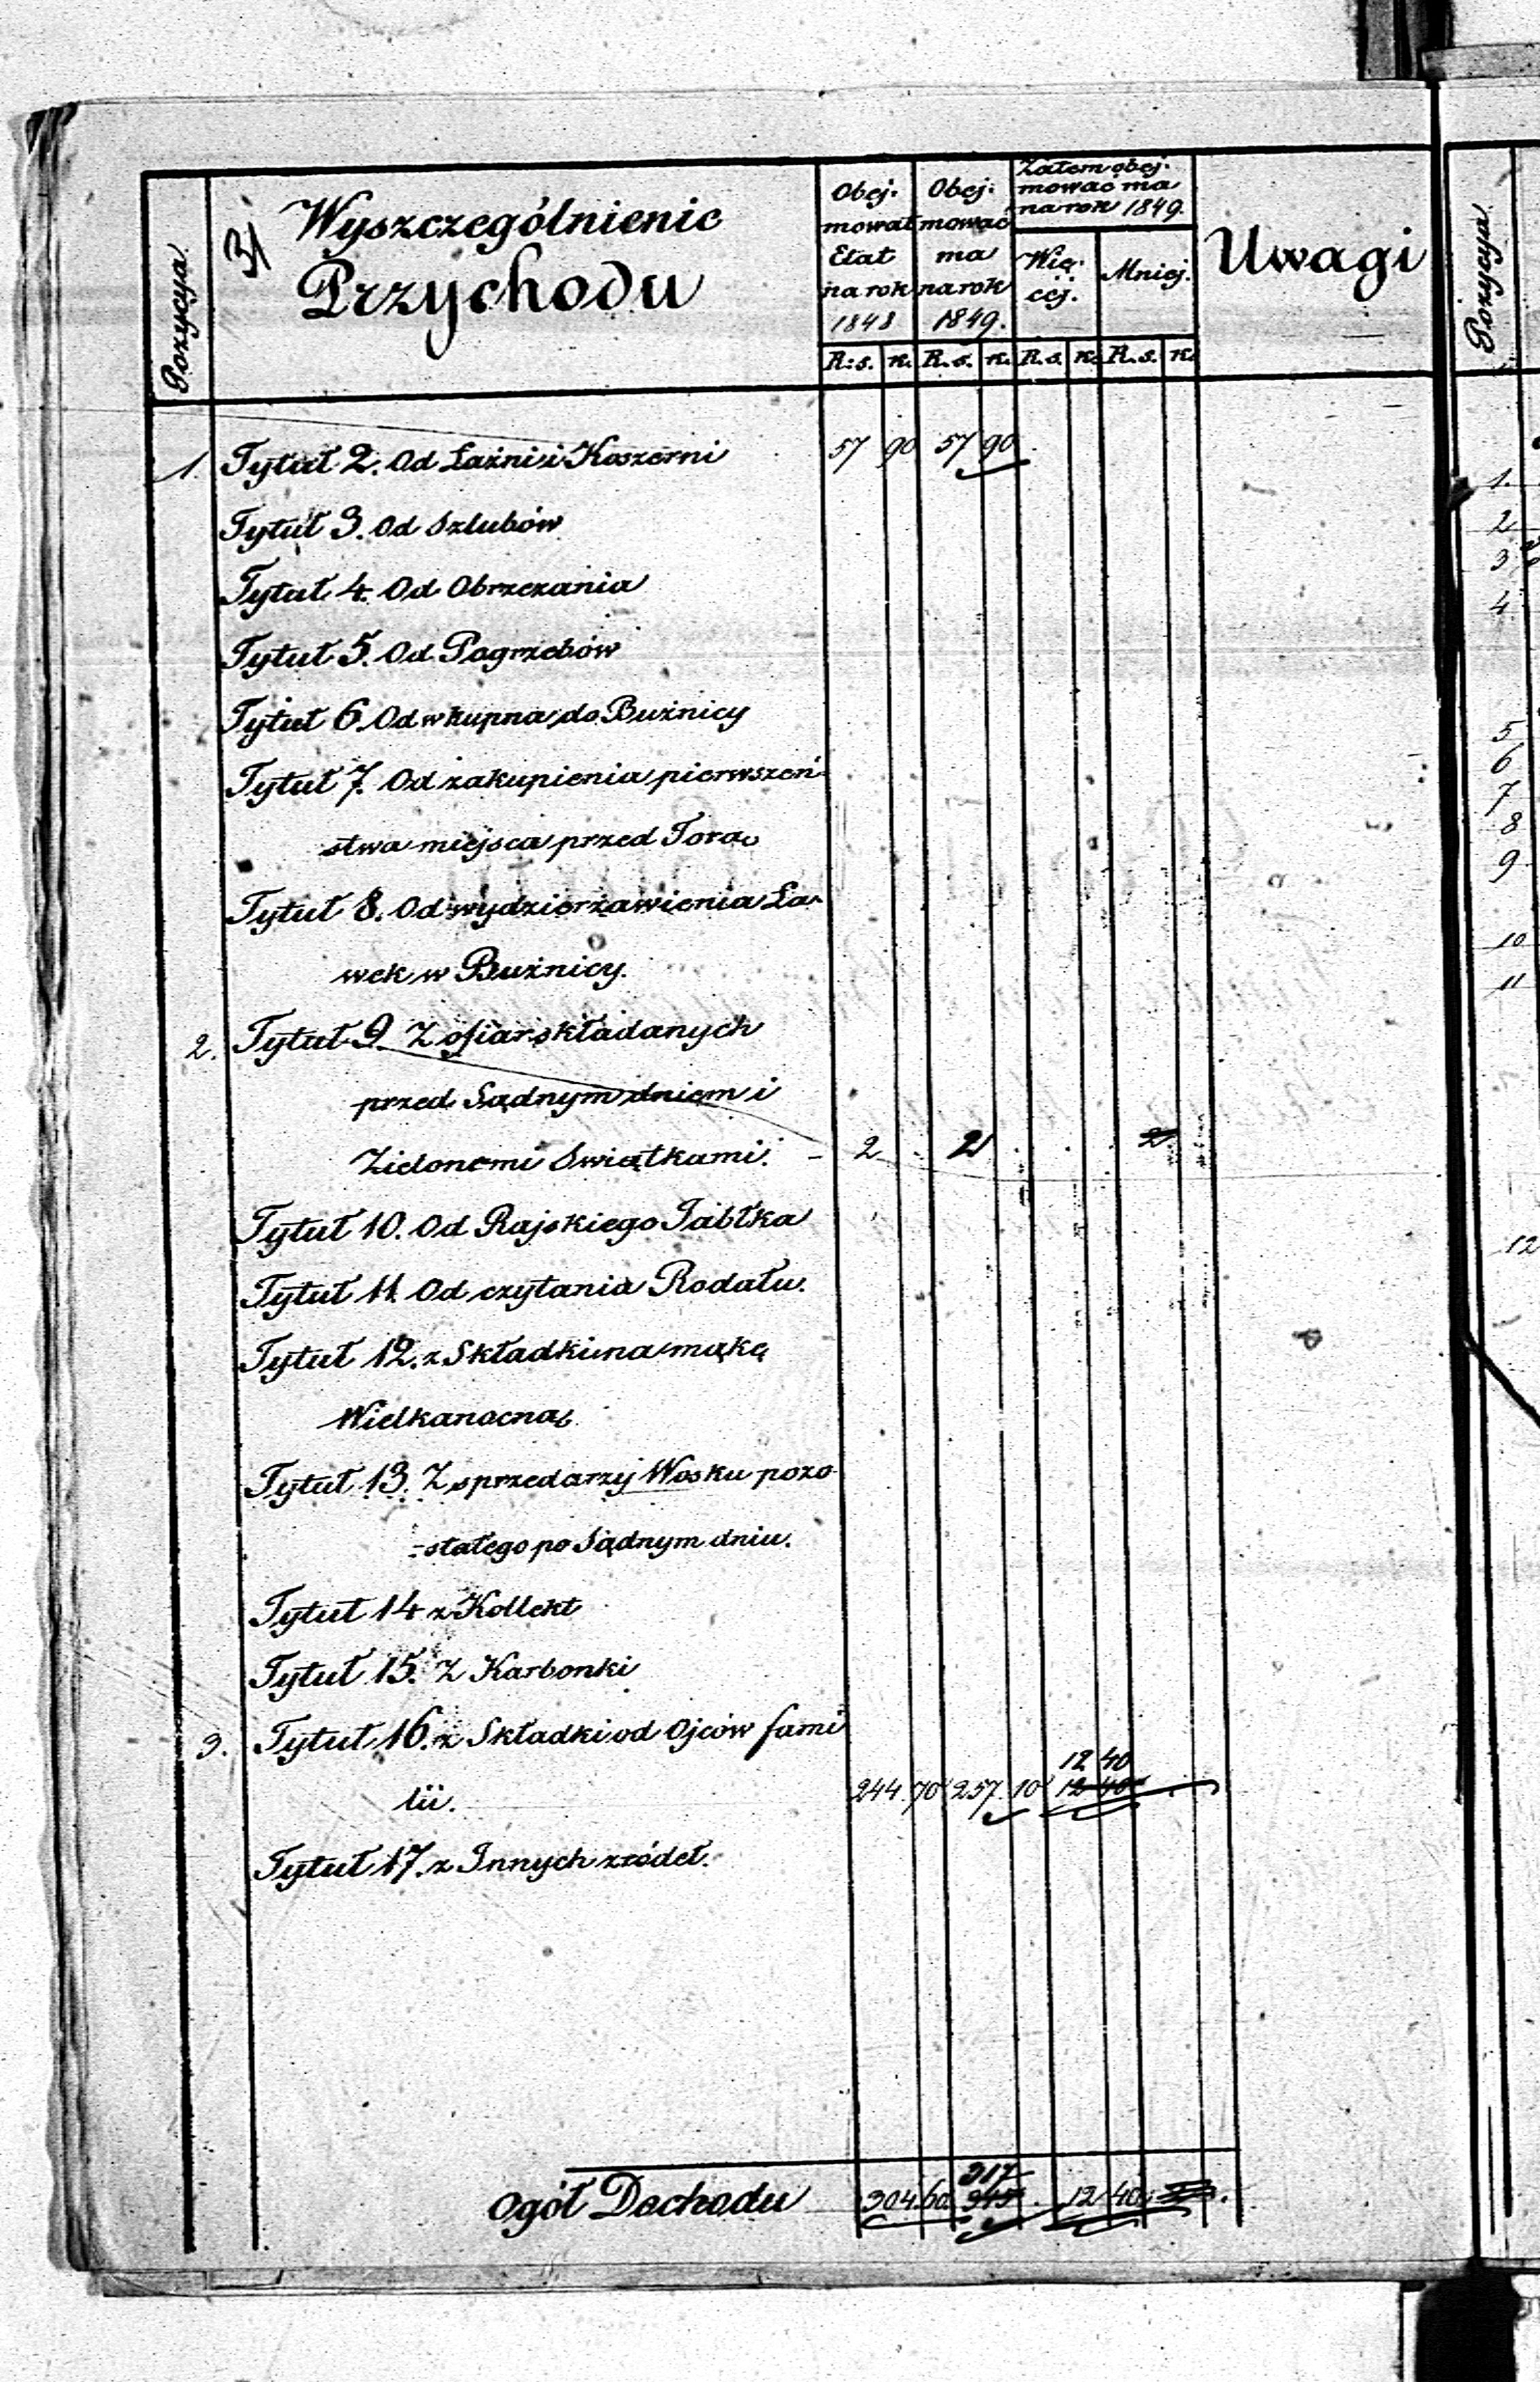 Pozycya.
3/
Wyszczególnienie
Przychodu
Obej-
mował
Etat
na rok
1848
Obej-
mować
ma
na rok
1849.
Zatem obej-
mować ma
na rok 1849.
Wię-
cej.
Mniej.
Uwagi
R:s. k. R.s. k. R.s. k. R.s. k.
1. Tytuł 2. Od Łaźni i Koszerni 57 90 57 90
Tytuł 3. Od Szlubów
Tytuł 4. Od Obrzezania
Tytuł 5. Od Pogrzebów
Tytuł 6. Od wkupna do Bużnicy
Tytuł 7. Od zakupienia pierwszeń-
stwa miejsca przed Torą
Tytuł 8. Od wydzierżawienia Ła-
wek w Bużnicy.
2. Tytuł 9. Z ofiar składanych
przed Sądnym dniem i
Zielonemi Swiątkami. - 2 . 2 . . . 2
Tytuł 10. Od Rajskiego Jabłka
Tytuł 11. Od czytania Rodału.
Tytuł 12. z Składki na mąkę
Wielkanocną.
Tytuł 13. Z sprzedarzy Wosku pozo-
-stałego po Sądnym dniu.
Tytuł 14 z Kollekt
Tytuł 15. Z Karbonki
3. Tytuł 16. z Składki od Ojców fami
12 40
lii. 244. 70 257. 10 12 40
Tytuł 17. z Innych zródeł.
317
Ogół Dochodu 304 60 345 . 12 40
Pozycya.
1.
2
3
4
5
6
7
8
9
10
11
12